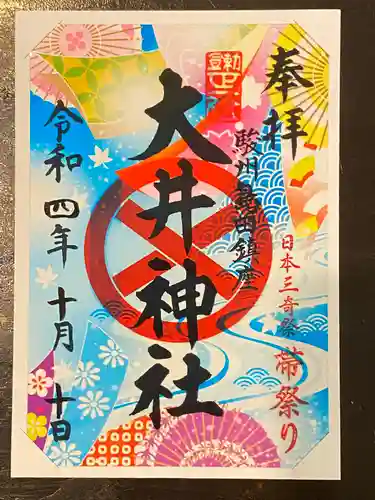 奉拝
日本三奇祭 帯祭り
駿州島田鎮座
大井神社
令和四年 十月 十日